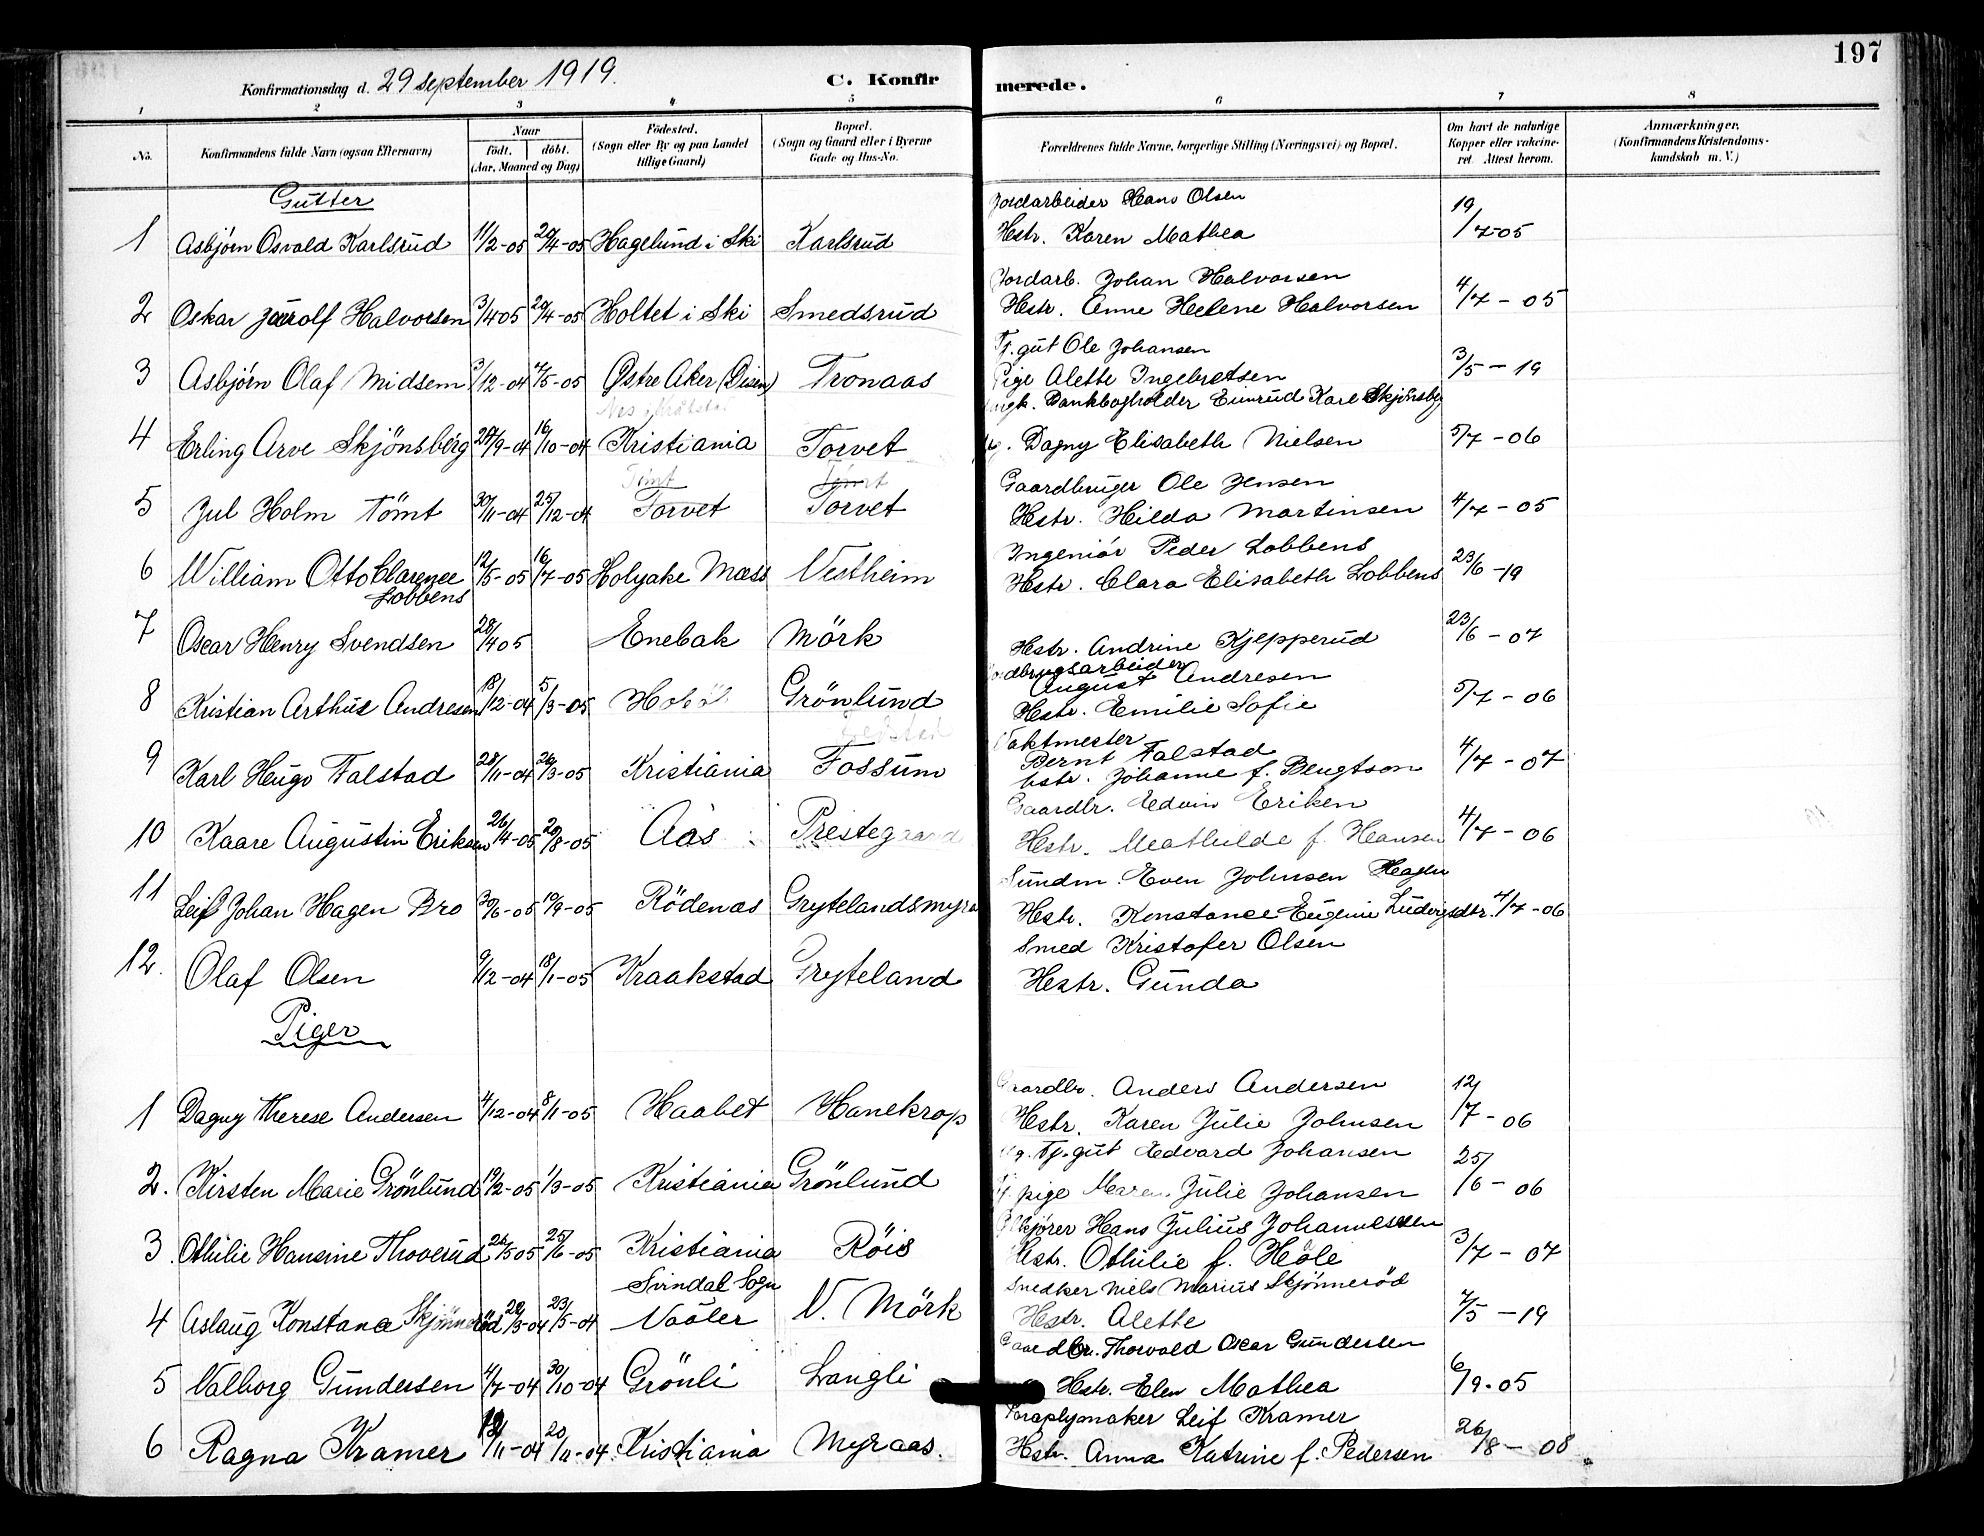 197
Konfirmationsdag d. 29 September 1919.
C. Konfirmerede.
1 2 3 4 5 6 7 8
No.
Konfirmandens fulde Navn (ogsaa Efternavn)
Naar
födt. döbt.
(Aar, Maaned og Dag)
Födested.
(Sogn eller By og paa Landet
tillige Gaard)
Bopæl.
(Sogn og Gaard eller i Byerne
Gade og Hus-No.
Forældrenes fulde Navne, borgerlige Stilling (Næringsvei) og Bopæl.
Om havt de naturlige
Kopper eller vakcine-
ret. Attest herom.
Anmærkninger.
(Konfirmandens Kristendoms-
kundskab m. V.)
Gutter
Jordarbeider Hans Olsen
1 Asbjørn Osvald Karlsrud 11/2-05 20/4-05 Hagelund i Ski Karlsrud Hstr. Karen Mathea 19/7-05
Jordarb. Johan Halvorsen
2 Oskar Halvorsen 3/4 05 20/4-05 Holtet i Ski Smedsrud Hstr. Anne Helene Halvorsen 4/7-05
Tj.gut Ole Johansen
3 Asbjörn Olaf Midsem 3/12-04 7/5-05 Østre Aker (Disen) Tronaas Pige Alette Ingebretsen 3/5-19
Bankbogholder Einrud Kare Skjönsby
4 Erling Arve Skjönsberg 28/9-04 16/10-04 Kristiania Torvet Dagny Elisabeth Nielsen 5/7-06
Tömt Tömt Gaardbruger Ole Jensen
5 Jul Holm Tömt 30/11-04 25/12-04 Torvet Torvet Hstr. Hilda Martinsen 4/7-05
Ingeniör Peder Lobbens
6 William Otto Clarence 12/5-05 16/7-05 Holyake Mass Vestheim Hstr. Clara Elisabeth Lobbens 23/6-19
Lobbens
7 Oscar Henry Svendsen 28/4 05 Enebak Mörk Hstr. Andrine Kjepperud 23/6-07
Jordbrugsarbeider
August Andresen
8 Kristian Arthur Andresen 18/12-04 5/3-05 Hoböl Grönlund Hstr. Emilie Sofie 5/7-06
Vaktmester
Bernt Falstad
9 Karl Hugo Falstad 28/11-04 26/3-05 Kristiania Fossum hstr. Johanne f. Bengtson 4/7-07
Gaardbr. Edvin Eriken
10 Kaare Augustin Eriksen 26/4-05 20/8-05 Aas Prestegaard Hstr. Mathilde f. Hansen 4/7-06
Sundm. Even Johnsen Hagen
11 Leif Johan Hagen Bro 30/6-05 10/9-05 Rödenas Grytelandsmyra Hstr. Konstance Eugenie Ludvigsdtr. 4/7-06
Smed Kristofer Olsen
12. Olaf Olsen 9/12-04 18/1-05 Kraakstad Gryteland Hestr. Gunda
Piger
Gaardbr. Anders Andersen
1 Dagny Therese Andersen 4/12-04 8/1-05 Haabet Hanekrop Hstr. Karen Julie Johnsen 12/7-06
Tj.gut Edvard Johansen
2. Kirsten Marie Grönlund 10/2-05 1/3-05 Kristiania Grönlund Tj. pige Maren Julie Johansen 25/6-06
Hans Julius Johannessen
3 Othilie Hansine Thoverud 26/5 05 25/6-05 Kristiania Röis Hstr. Othilie f. Hole 3/7-07
Svindal Sogn Snedker Niels Marius Skjönneröd
4 Aslaug Konstance Skjönneröd 28/3-04 23/5-04 Vaaler N. Mörk Hstr. Alette 7/5-19
Gaardbr. Thorvald Oscar Gundersen
5 Valborg Gundersen 4/7-04 30/10-04 Grönli Langli Hstr. Elen Mathea 6/9-05
Paraplymaker Leif Kramer
6 Ragna Kramer 12/11-04 20/11-04 Kristiania Myraas. Hstr. Anna Katrine f. Pedersen 26/8-08